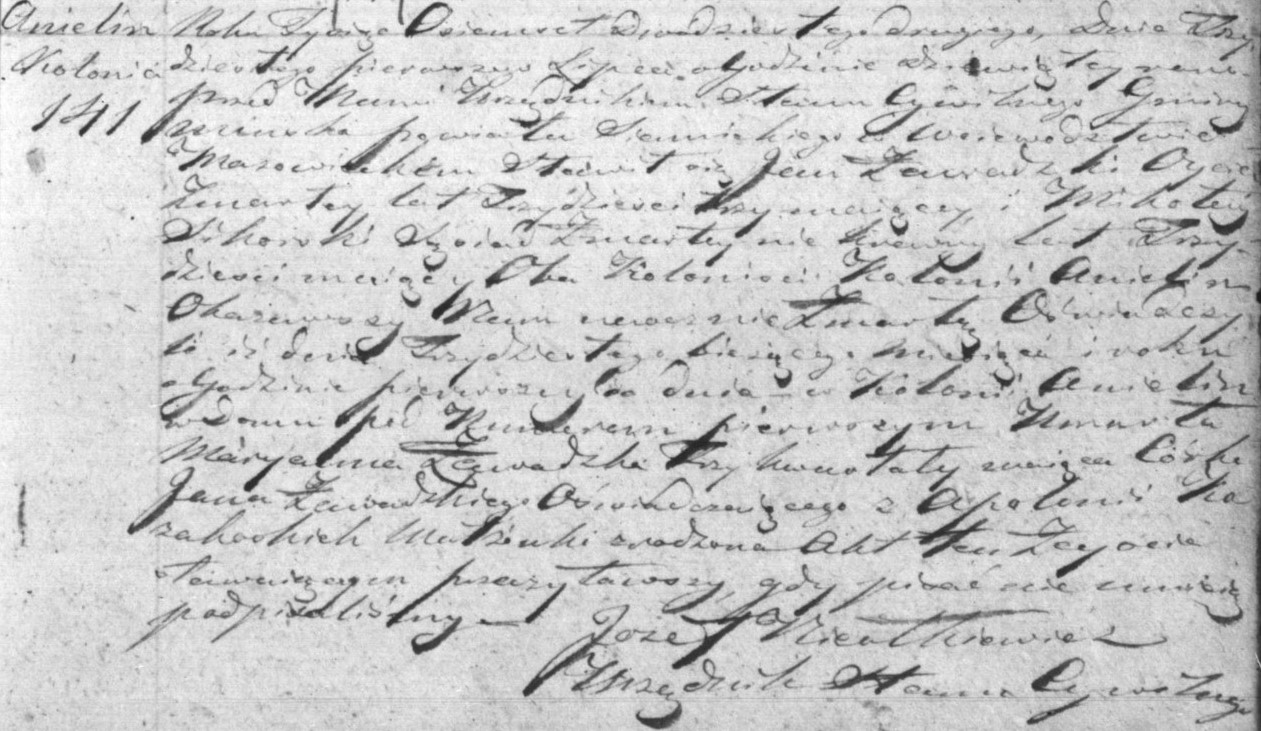 Anielin Roku Tysiąc Osiemset Dwudziestego drugiego, Dnia Trzy
Kolonia dziestego pierwszego Lipca o Godzinie dziewiątey rano
141 przed Nami Urzędnikiem Stanu Cywilnego Gminy
powiatu Siennickiego w Woiewodztwie
Mazowieckim Stawił się Jan Zawadzki Oyciec
Zmarłey lat Trzydzieści trzy maiący, i Mikołay
Sikorski Sąsiad Zmarłey nie krewny lat Trzy
dzieści maiący Oba Kolonisci Kolonii Anielin
Okazawszy Nam naocznie Zmarłą Oświadczy
li iż dnia Trzydziestego bieżącego miesiąca i roku
o Godzinie pierwszy do dnia w Kolonii Anielin
w Domu pod Numerem pierwszym Umarła
Maryanna Zawadzka Trzy kwartały maiąca Córka
Jana Zawadzkiego Oświadczaiącego z Apolonii Ko
małżonki zrodzona Akt ten Zeyscia
Stawaiącym przeczytawszy, gdy pisać nie umieią
podpisaliśmy
Józef Kwiatkiewicz
Urzędnik Stanu Cywilnego